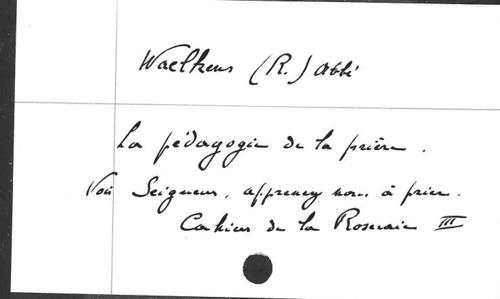 Waelkens (R.) abbé
La pédagogie de la prière.
Voir Seigneur, apprenez nous à prier.
Cahiers de la Roseraie III